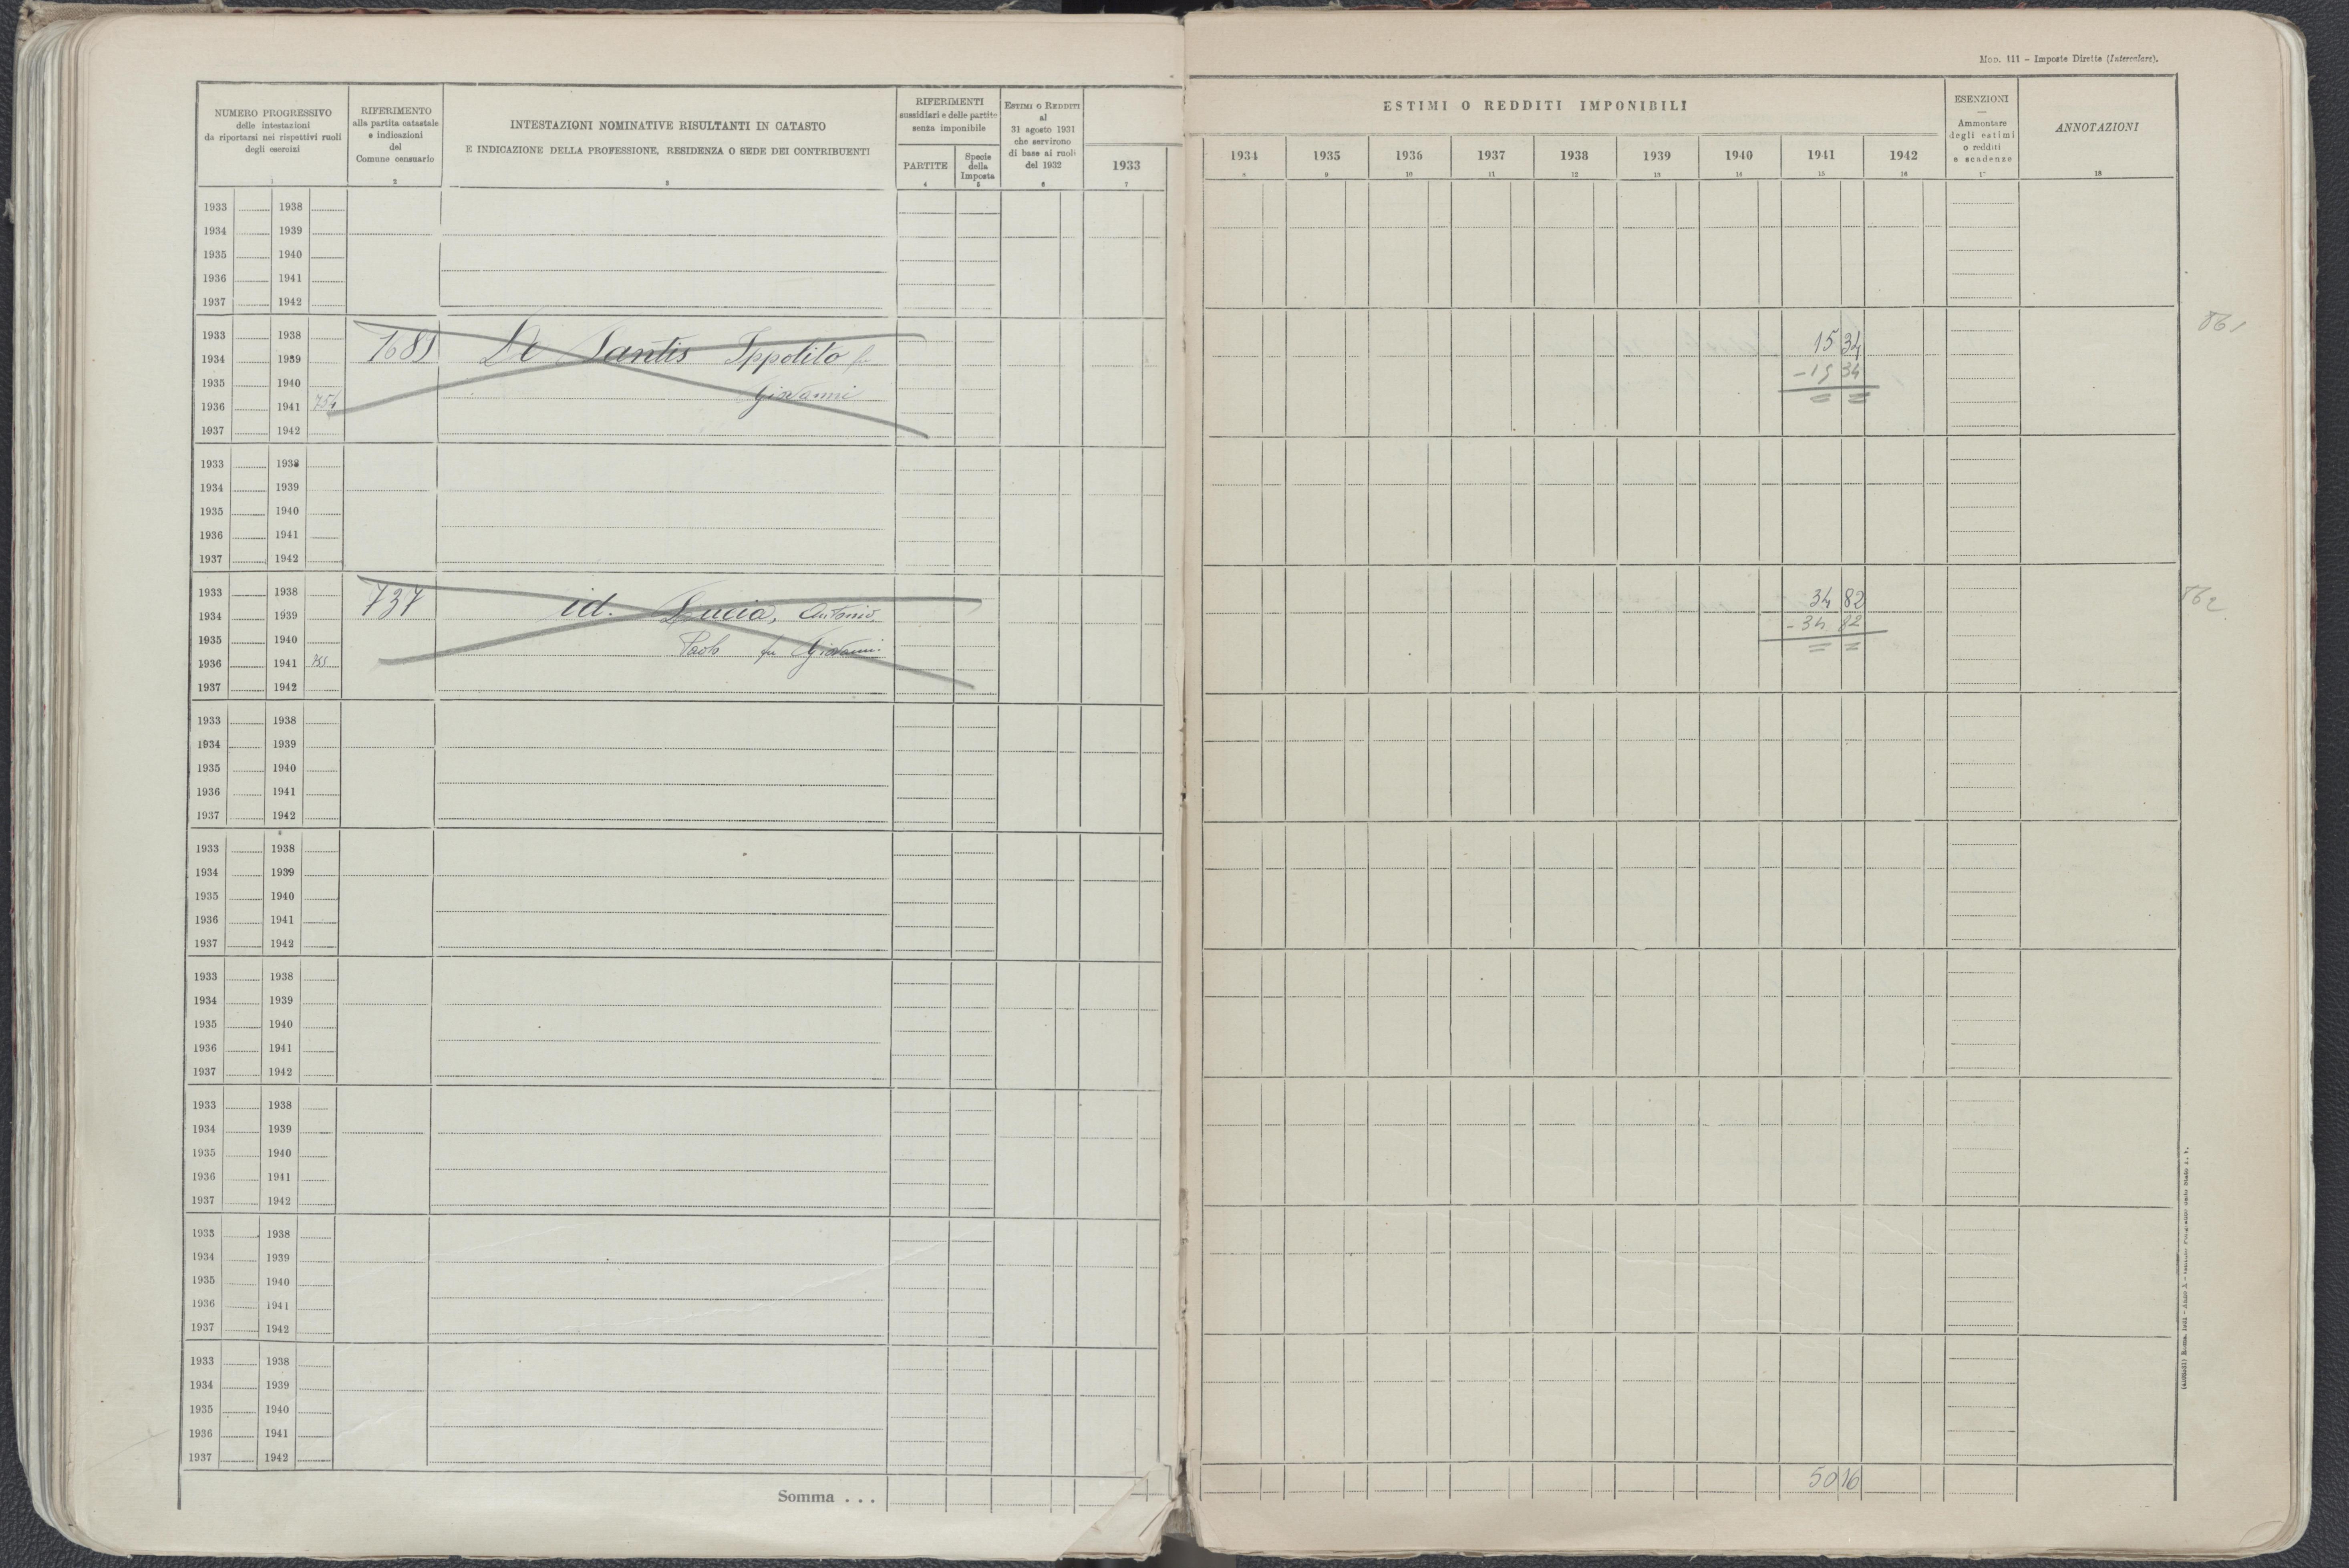 MOD. 111 – Imposte Dirette (Intercalare).
NUMERO PROGRESSIVO
delle intestazioni
da riportarsi nei rispettivi ruoli
degli esercizi
1
RIFERIMENTO
alla partita catastale
e indicazioni
del
Comune censuario
2
INTESTAZIONI NOMINATIVE RISULTANTI IN CATASTO
E INDICAZIONE DELLA PROFESSIONE, RESIDENZA O SEDE DEI CONTRIBUENTI
3
RIFERIMENTI
sussidiari e delle partite
senza imponibile
PARTITE
4
Specie
della
Imposta
5
ESTIMI O REDDITI
al
31 agosto 1931
che servirono
di base ai ruoli
del 1932
6
1933
7
ESTIMI O REDDITI IMPONIBILI
1934 1935 1936 1937 1938 1939 1940 1941 1942
8 9 10 11 12 13 14 15 16
ESENZIONI
—
Ammontare
degli estimi
o redditi
e scadenze
17
ANNOTAZIONI
18
1933 1938
1934 1939
1935 1940
1936 1941
1937 1942
1933 1938
1934 1939 1681 De Santis Ippolito fu 15 34 861
1935 1940 – 15 34
1936 1941 754 Giovanni
1937 1942
1933 1938
1934 1939
1935 1940
1936 1941
1937 1942
1933 1938
1934 1939 737 id. Lucia, Antonio, 34 82 862
1935 1940 – 34 82
1936 1941 755 Paolo fu Giovanni.
1937 1942
1933 1938
1934 1939
1935 1940
1936 1941
1937 1942
1933 1938
1934 1939
1935 1940
1936 1941
1937 1942
1933 1938
1934 1939
1935 1940
1936 1941
1937 1942
1933 1938
1934 1939
1935 1940
1936 1941
1937 1942
1933 1938
1934 1939
1935 1940
1936 1941
1937 1942
1933 1938
1934 1939
1935 1940
1936 1941
1937 1942
Somma . . . 50 16